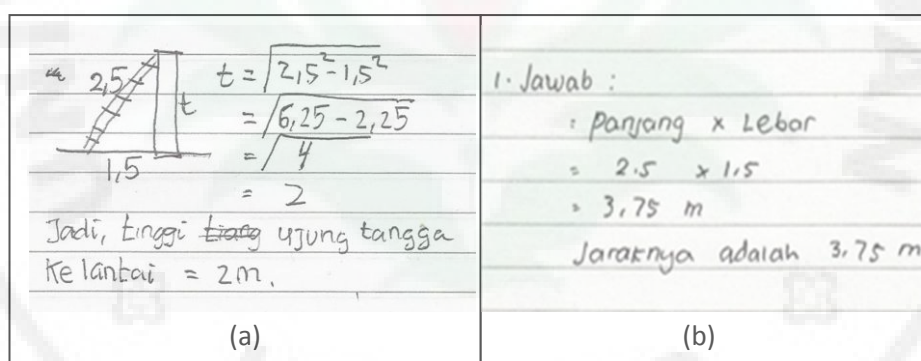 2,5
t
1,5
t = √2,5² - 1,5²
= √6,25 - 2,25
= √4
= 2
Jadi, tinggi tiang ujung tangga
ke lantai = 2m.
(a)
1. Jawab :
: Panjang x Lebar
= 2.5 x 1.5
= 3,75 m
Jaraknya adalah 3,75 m
(b)